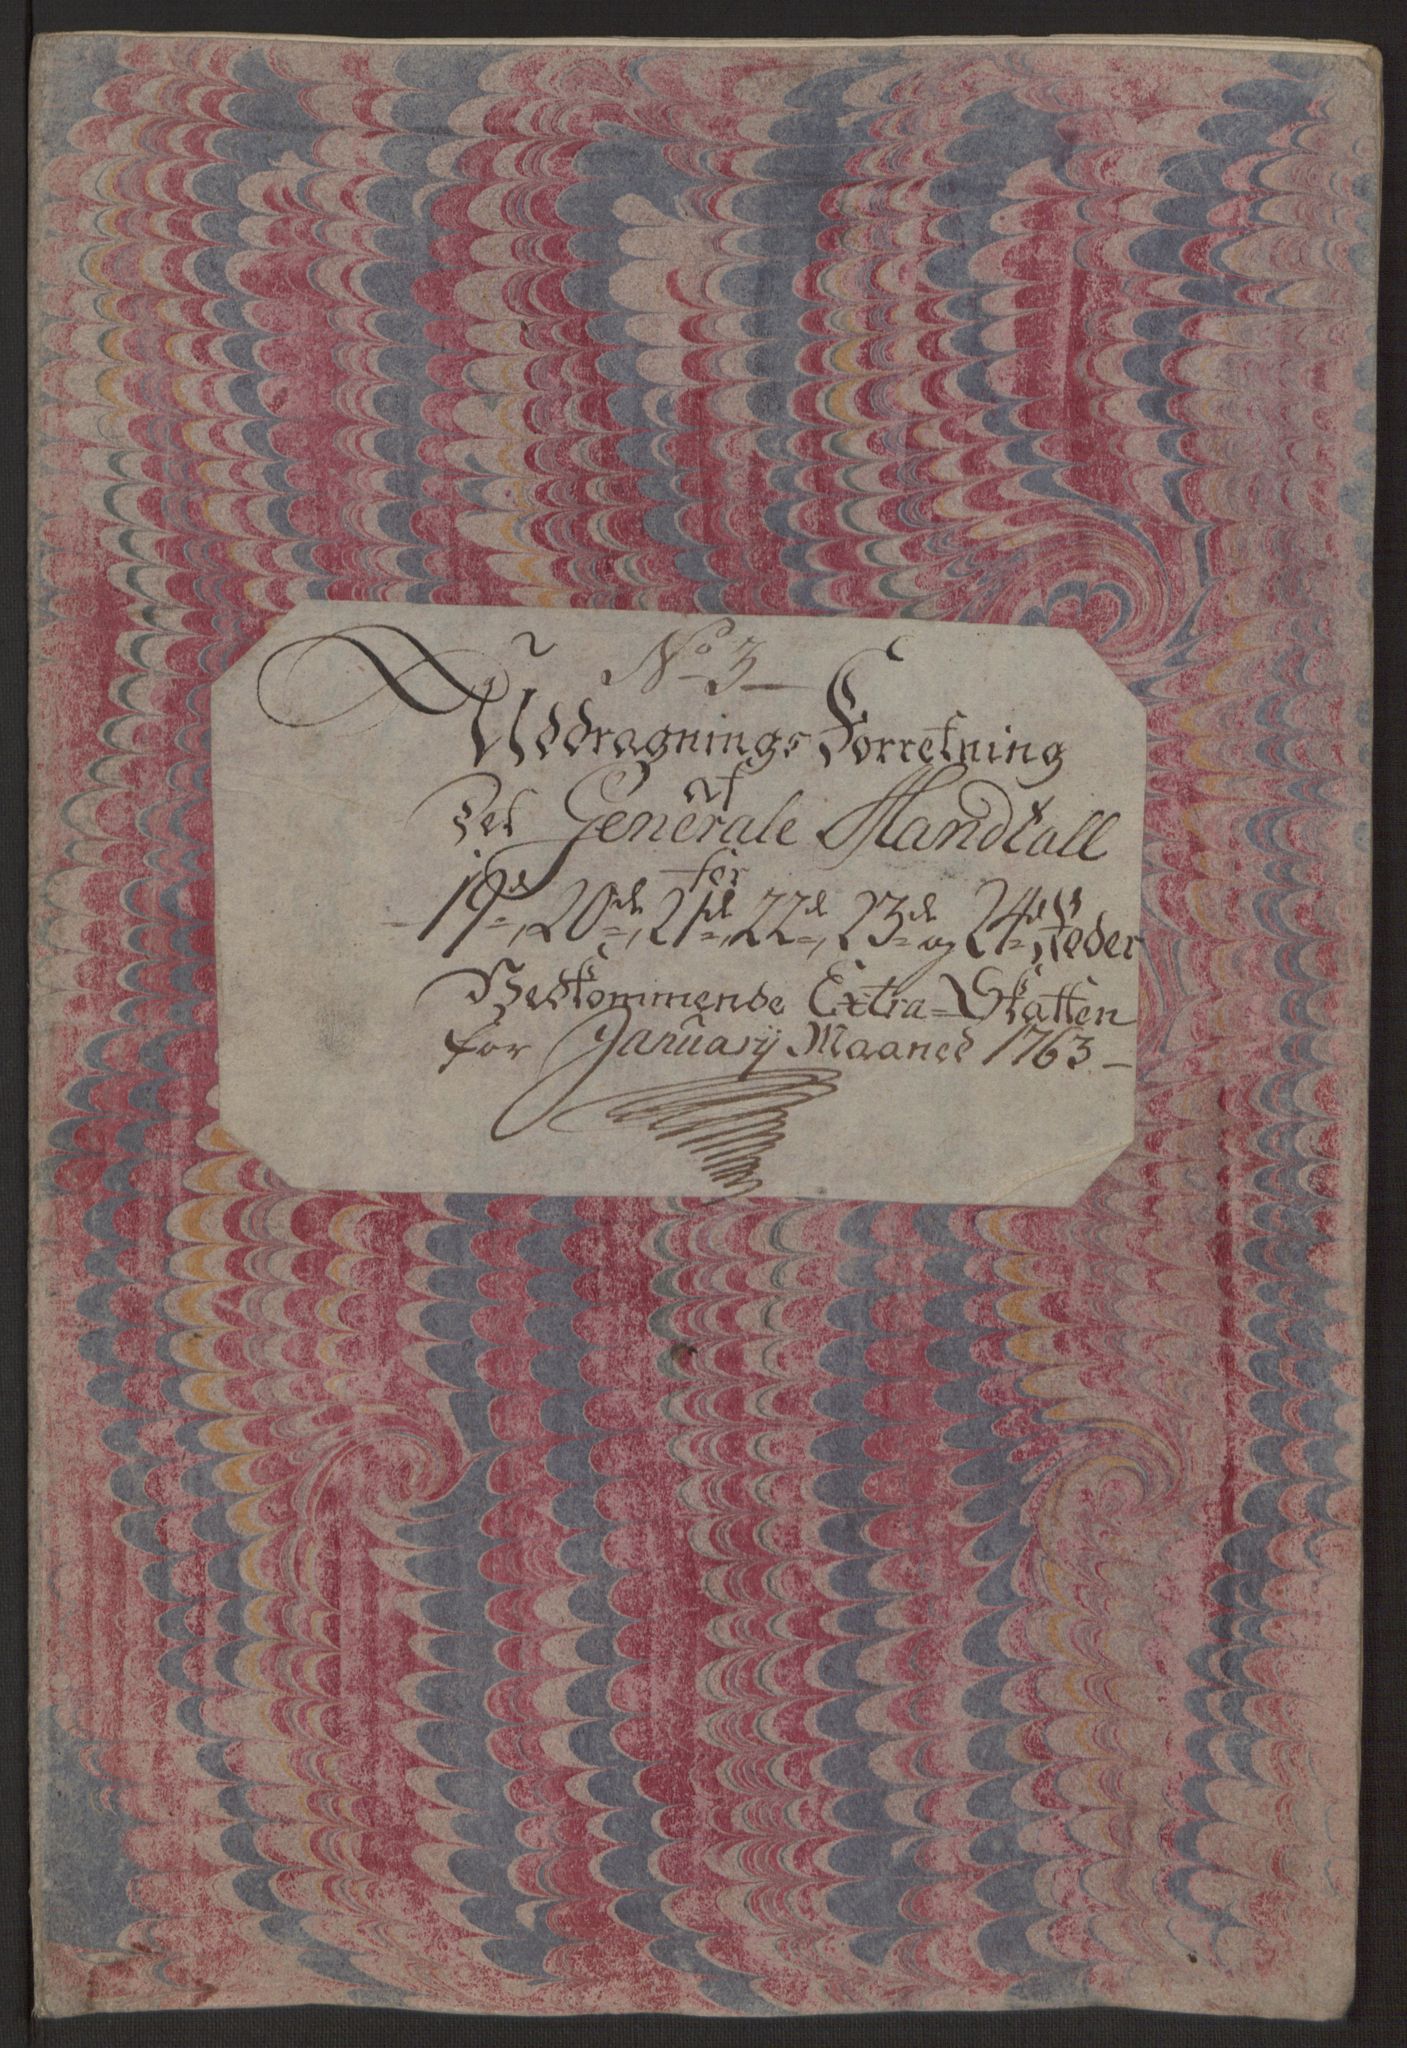 No 3
Uddragnings Forretning
af
Det Generale Mandtall
for
19d, 20de, 21de, 22de, 23de og 24de Roder
Vedkommende Extra-Skatten
for January Maaned 1763